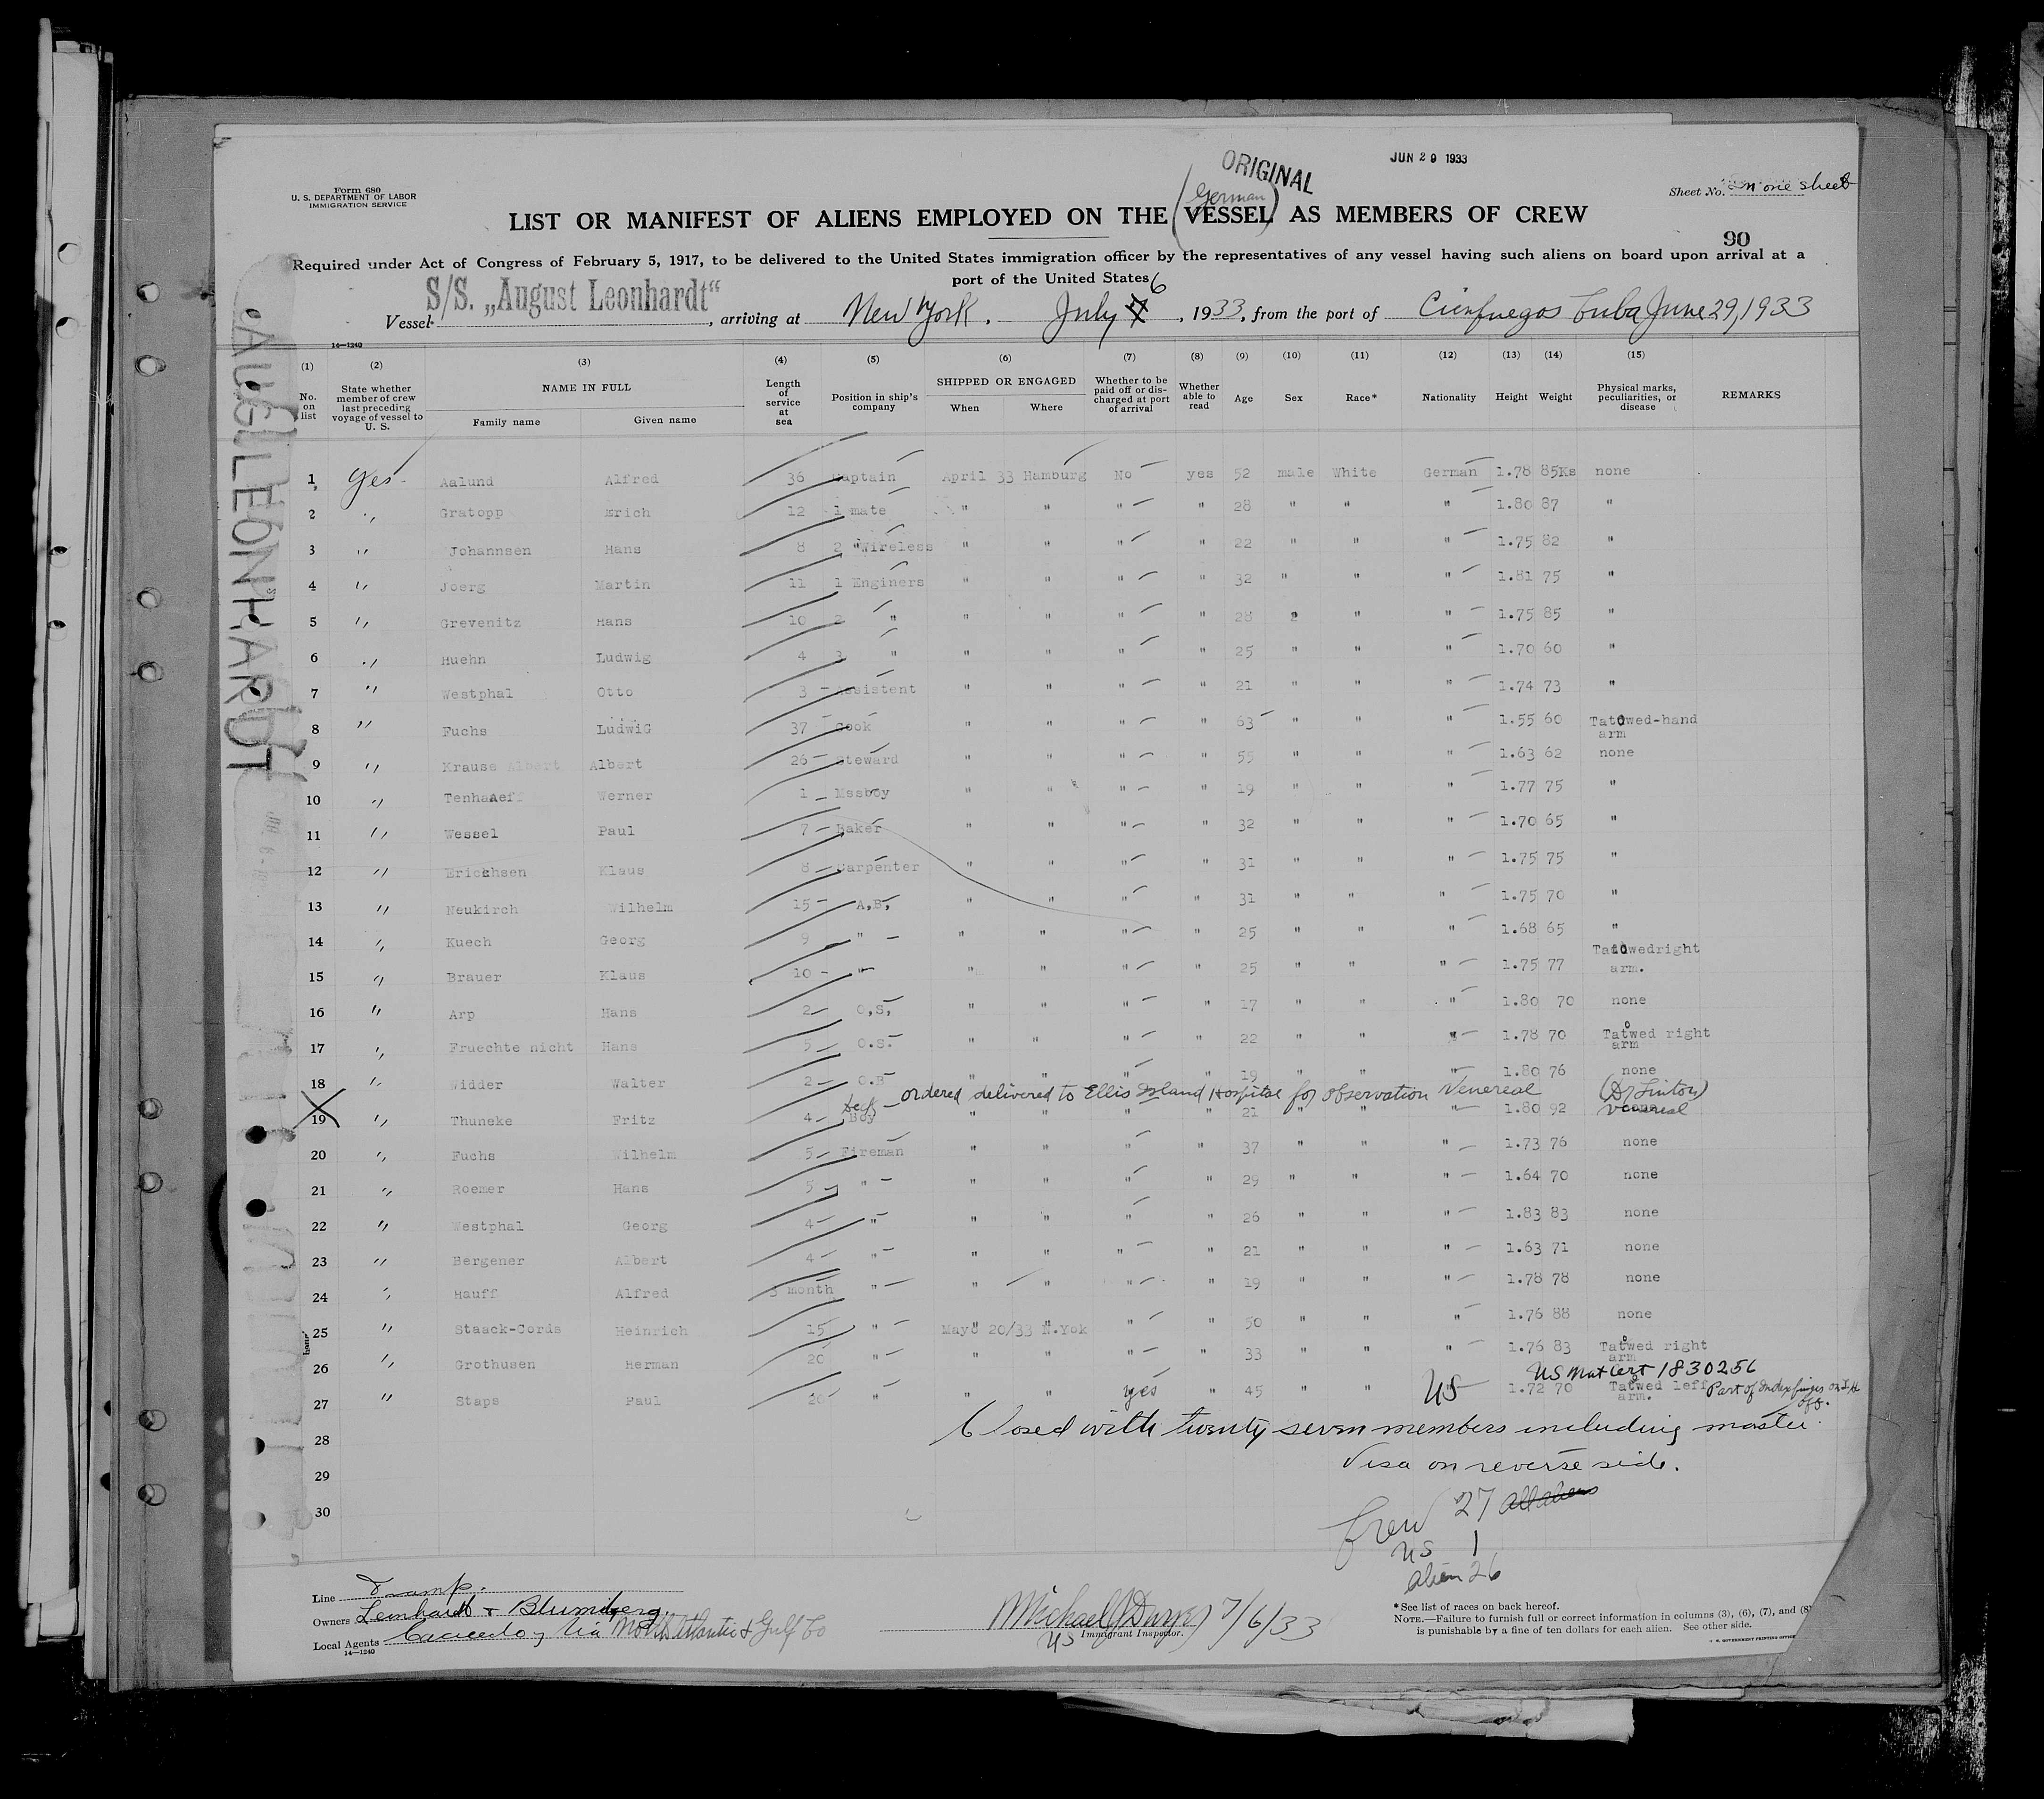 JUN 29 1933
ORIGINAL
(German)
Form 680
U. S. DEPARTMENT OF LABOR
IMMIGRATION SERVICE
Sheet No. In one sheet
LIST OR MANIFEST OF ALIENS EMPLOYED ON THE VESSEL AS MEMBERS OF CREW
90
Required under Act of Congress of February 5, 1917, to be delivered to the United States immigration officer by the representatives of any vessel having such aliens on board upon arrival at a
port of the United States
Vessel S/S. „August Leonhardt“, arriving at New York, July 6 7, 1933, from the port of Cienfuegos Cuba June 29, 1933
14—1240
AUG LEONHARDT
(1) (2) (3) (4) (5) (6) (7) (8) (9) (10) (11) (12) (13) (14) (15)
No. on list
State whether member of crew last preceding voyage of vessel to U. S.
NAME IN FULL
Family name Given name
Length of service at sea
Position in ship's company
SHIPPED OR ENGAGED
When Where
Whether to be paid off or discharged at port of arrival
Whether able to read
Age Sex Race* Nationality Height Weight
Physical marks, peculiarities, or disease
REMARKS
1 Yes Aalund Alfred 36 Captain April 33 Hamburg No yes 52 male White German 1.78 85Ks none
2 " Gratopp Erich 12 1 mate " " " " 28 " " " 1.80 87 "
3 " Johannsen Hans 8 2 "Wireless " " " " 22 " " " 1.75 82 "
4 " Joerg Martin 11 1 Enginers " " " " 32 " " " 1.81 75 "
5 " Grevenitz Hans 10 2 " " " " " 28 " " " 1.75 85 "
6 " Huehn Ludwig 4 3 " " " " " 25 " " " 1.70 60 "
7 " Westphal Otto 3 Assistent " " " " 21 " " " 1.74 73 "
8 " Fuchs LudwiG 37 Cook " " " " 63 " " " 1.55 60 Tatowed-hand arm
9 " Krause Albert Albert 26 Steward " " " " 55 " " " 1.63 62 none
10 " Tenhaaeff Werner 1 Mssboy " " " " 19 " " " 1.77 75 "
11 " Wessel Paul 7 Baker " " " " 32 " " " 1.70 65 "
12 " Erichsen Klaus 8 Carpenter " " " " 31 " " " 1.75 75 "
13 " Neukirch Wilhelm 15 A,B, " " " " 31 " " " 1.75 70 "
14 " Kuech Georg 9 " " " " " 25 " " " 1.68 65 "
15 " Brauer Klaus 10 " " " " " 25 " " " 1.75 77 Tatowedright arm.
16 " Arp Hans 2 O,S, " " " " 17 " " " 1.80 70 none
17 " Fruechte nicht Hans 5 O.S. " " " " 22 " " " 1.78 70 Tatowed right arm
18 " Widder Walter 2 " " " 19 " " " 1.80 76 none
ordered delivered to Ellis Island Hospital for observation Venereal (Dr Linton)
19 " Thuneke Fritz 4 Boy " " " " 21 " " " 1.80 92 Venereal
20 " Fuchs Wilhelm 5 Fireman " " " " 37 " " " 1.73 76 none
21 " Roemer Hans 5 " " " " " 29 " " " 1.64 70 none
22 " Westphal Georg 4 " " " " " 26 " " " 1.83 83 none
23 " Bergener Albert 4 " " " " " 21 " " " 1.63 71 none
24 " Hauff Alfred 3 month " " " " " 19 " " " 1.78 78 none
25 " Staack-Cords Heinrich 15 " May 20/33 N.Yok " " 50 " " " 1.76 88 none
26 " Grothusen Herman 20 " " " " " 33 " " " 1.76 83 Tatowed right arm
US Nat Cert 1830256
27 " Staps Paul 20 " " " yes " 45 " " US 1.72 70 Tatowed left arm. Part of Index finger on L H off.
28 Closed with twenty seven members including master
29 Visa on reverse side.
30
Crew 27 all aliens
US 1
Alien 26
Line Tramp.
Owners Leonhardt & Blumberg.
Local Agents North Atlantic & Gulf Co
14—1240
7/6/33
US Immigrant Inspector.
*See list of races on back hereof.
NOTE.—Failure to furnish full or correct information in columns (3), (6), (7), and (8)
is punishable by a fine of ten dollars for each alien. See other side.
U. S. GOVERNMENT PRINTING OFFICE